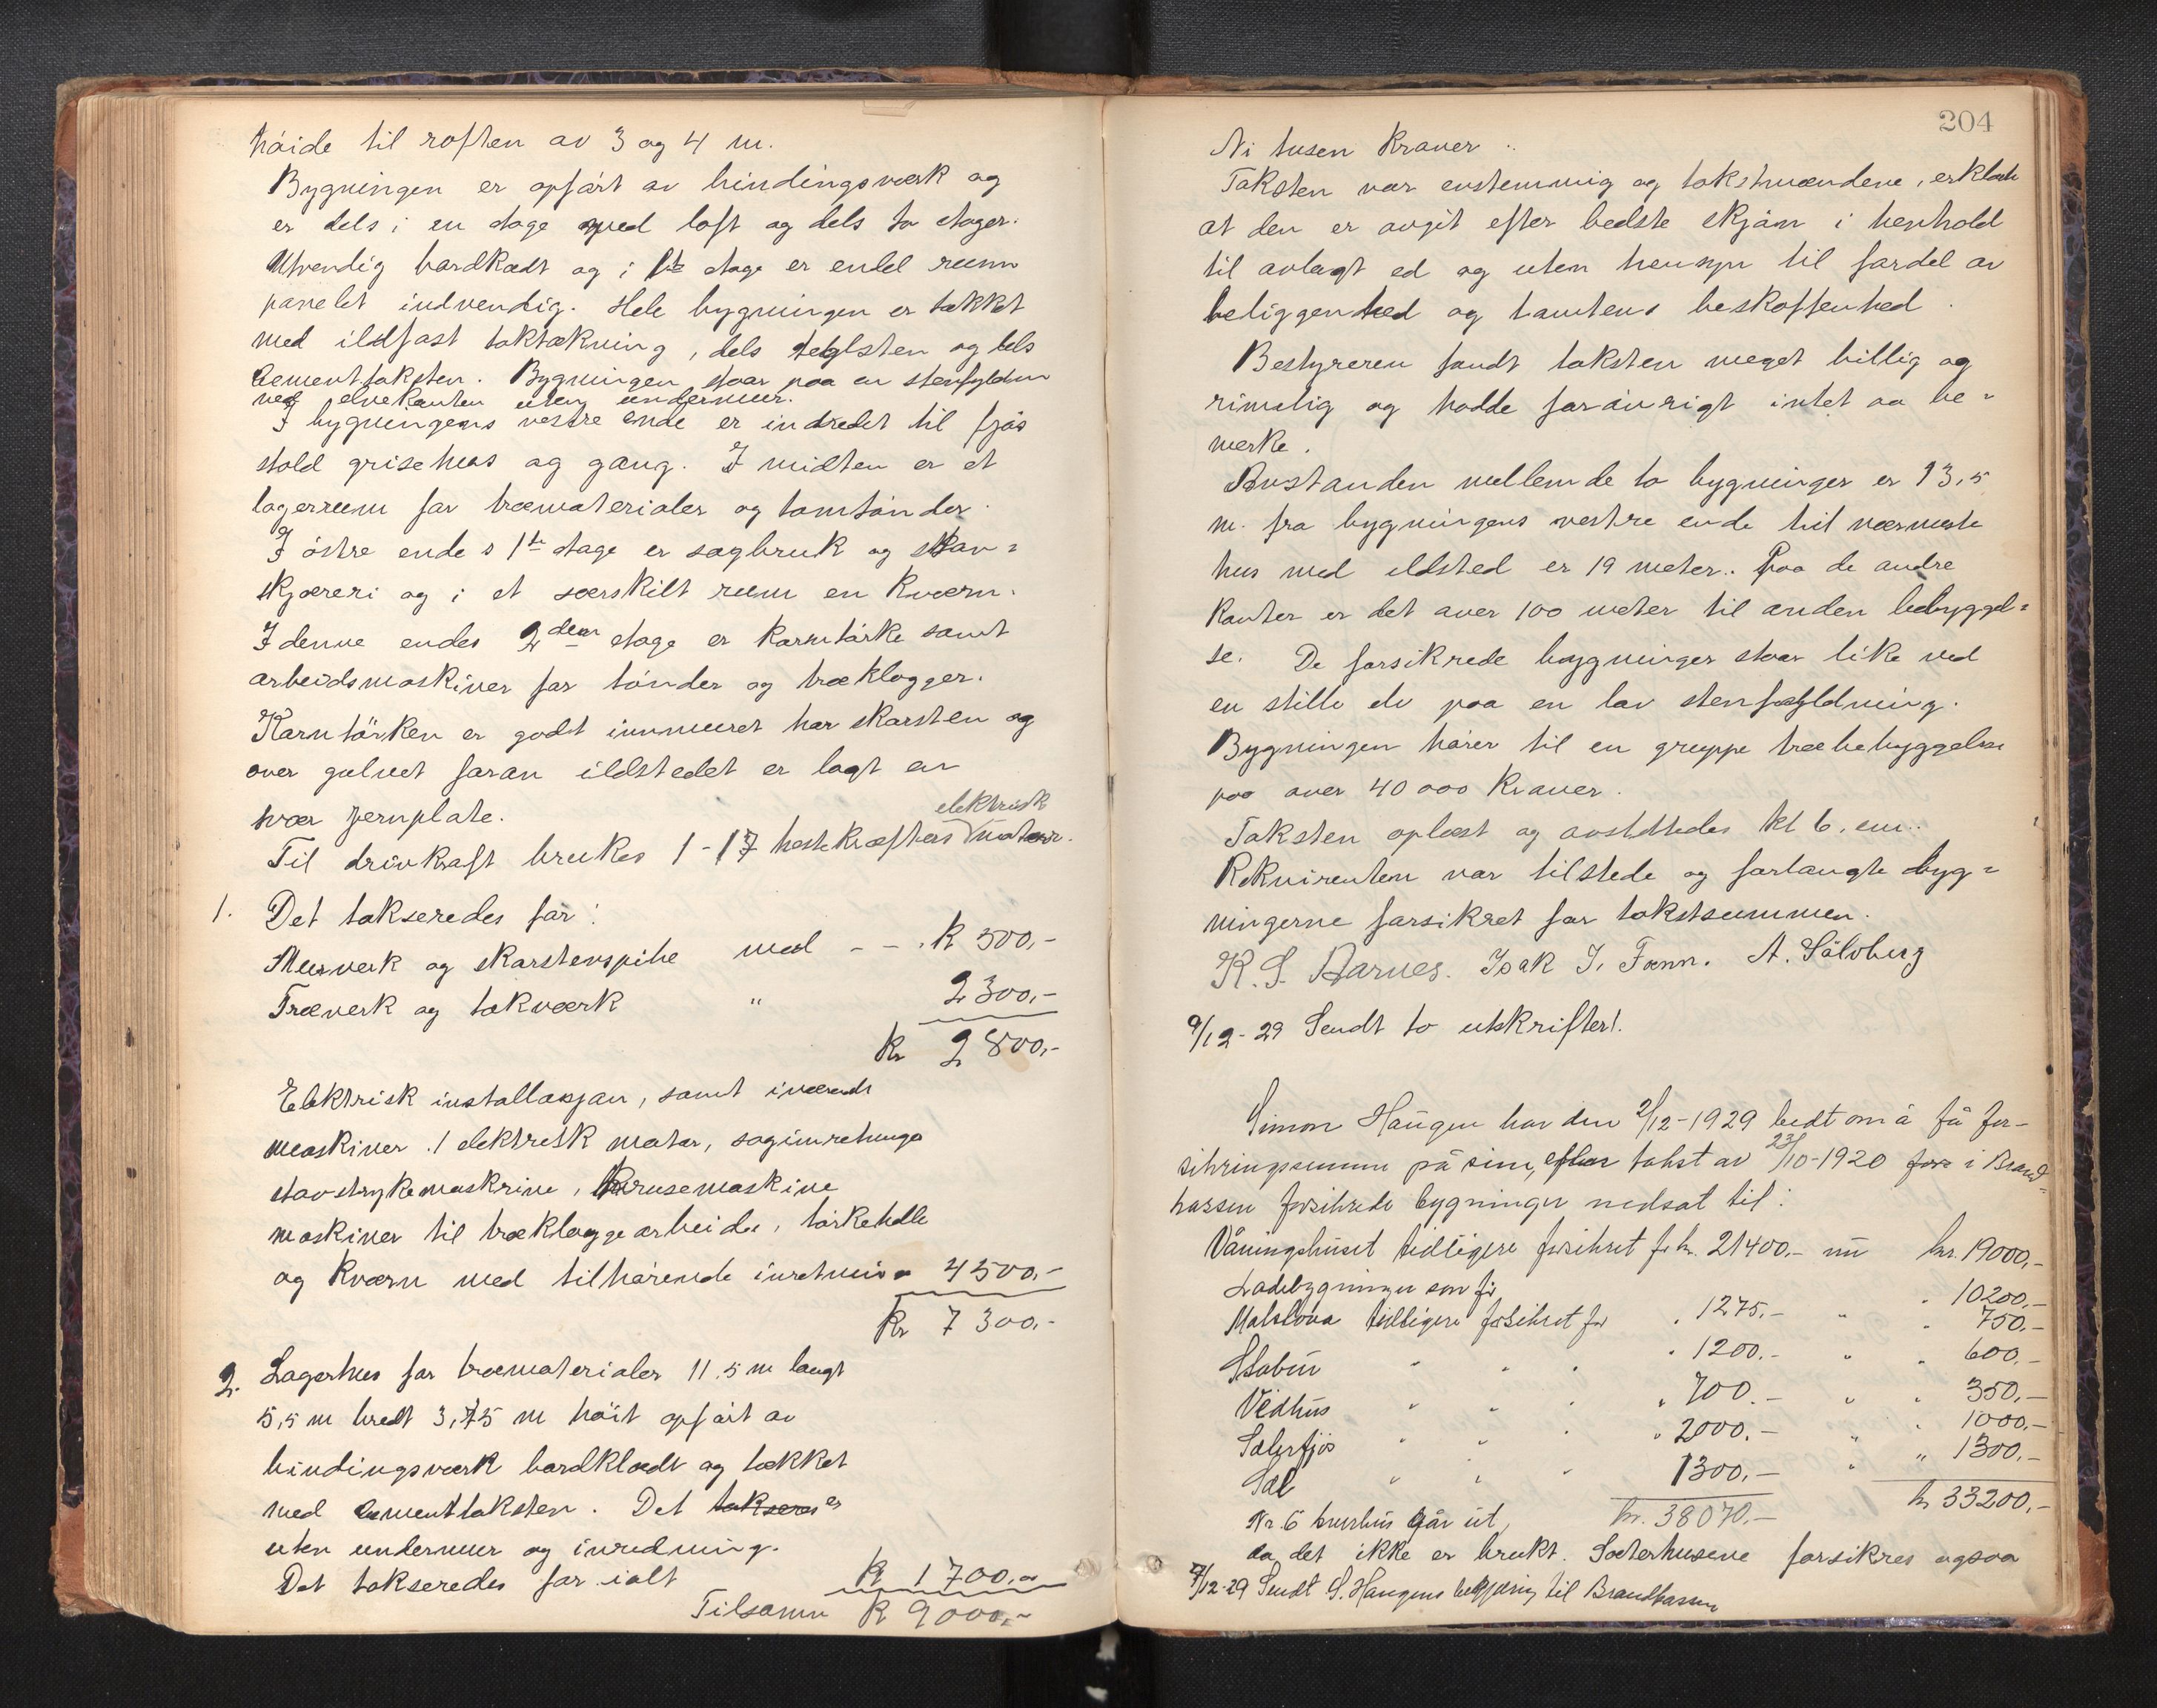 høide til røsten av 3 og 4 m.
Bygningen er opført av bindingsværk og
er dels i en etage med loft og dels to etager.
Utvendig bordkædt og i 1ste etage er endel rum
panelet indvendig. Hele bygningen er tækket
med ildfast taktækning, dels teglsten og dels
cementtaksten. Bygningen staar paa en stenfyldn
ved elvekanten uten undermur.
I bygningens vestre ende er indredet til fjøs
stald grisehus og gang. I midten er et
lagerrum for træmaterialer og tomtønder.
I østre ende s 1ste etage er sagbruk og stav=
skjæreri og i et særskilt rum en kværn.
I denne endes 2den etage er korntørke samt
arbeidsmaskiner for tønder og træklagger.
Korntörken er godt innmuret har skorsten og
over gulvet foran ildstedet er lagt en
svær jernplate.
Til drivkraft brukes 1 - 17 hestekræfters elektrisk motor.
1. Det takseredes for:
Murverk og skorstenspibe med - - . K 500,-
Træverk og takværk " 2300,-
Kr 2800,-
Elektrisk installasjon, samt iværende
maskiner. 1 elektrisk motor, saginretninga
stavstrykemaskine, krusemaskine
maskiner til træklaggearbeide, törkehelle
og kværn med tilhørende inretning 4500,-
Kr 7300,-
2. Lagerhus for træmaterialer 11,5 m langt
5,5 m bredt 3,75 m høit opført av
bindingsværk bordklædt og tækket
med cementtaksten. Det takseres er
uten undermur og inredning.
Det takseredes for ialt K 1700,-
Tilsamm K 9000,-
204
Ni tusen kroner ..
Taksten var enstemmig og takstmændene, erklærte
at den er avgit efter bedste skjøn i henhold
til avlagt ed og uten hensyn til fordel av
beliggenhed og tomtens beskaffenhed.
Bestyreren fandt taksten meget billig og
rimelig og hadde forøvrigt intet aa be=
merke.
Avstanden mellem de to bygninger er 13,5
m. fra bygningens vestre ende til nærmeste
hus med ildsted er 19 meter. Paa de andre
kanter er det over 100 meter til anden bebyggel=
se. De forsikrede bygninger staar like ved
en stille elv paa en lav stenfyldning.
Bygningen hører til en gruppe træbebyggelse
paa over 40 000 kroner.
Taksten oplæst og avsluttedes kl 6. em..
Rekvirenten var tilstede og forlangte byg=
ningerne forsikret for takstsummen.
K. S. Aarnes. Isak I. Fonn. A. Sölvberg
9/12-29 Sendt to utskrifter!.
Simon Haugen har den 2/12-1929 bedt om å få for-
sikringssummen på sine, efter takst av 23/10-1920 for i Brand=
kassen forsikrede bygninger nedsat til:
Våningshuset tidligere forsikret for kr. 21400,- nu kr. 19000,-
Ladebygningen som før " 10200,-
Malstova tidligere forsikret for " 1275,- " " 750,-
Stabur " " " " 1200,- " " 600,-
Vedhus " " " " 700,- " " 350,-
Sæterfjös " " " " 2000,- " " 1000,-
Sæl " " " 1300,- " " 1300,-
kr. 38070,- kr 33200,-
Nr. 6 kvernhus går ut,
da det ikke er brukt. Sæterhusene forsikres ogsaa
7/12-29 Sendt S. Haugens begjæring til Brandkassen